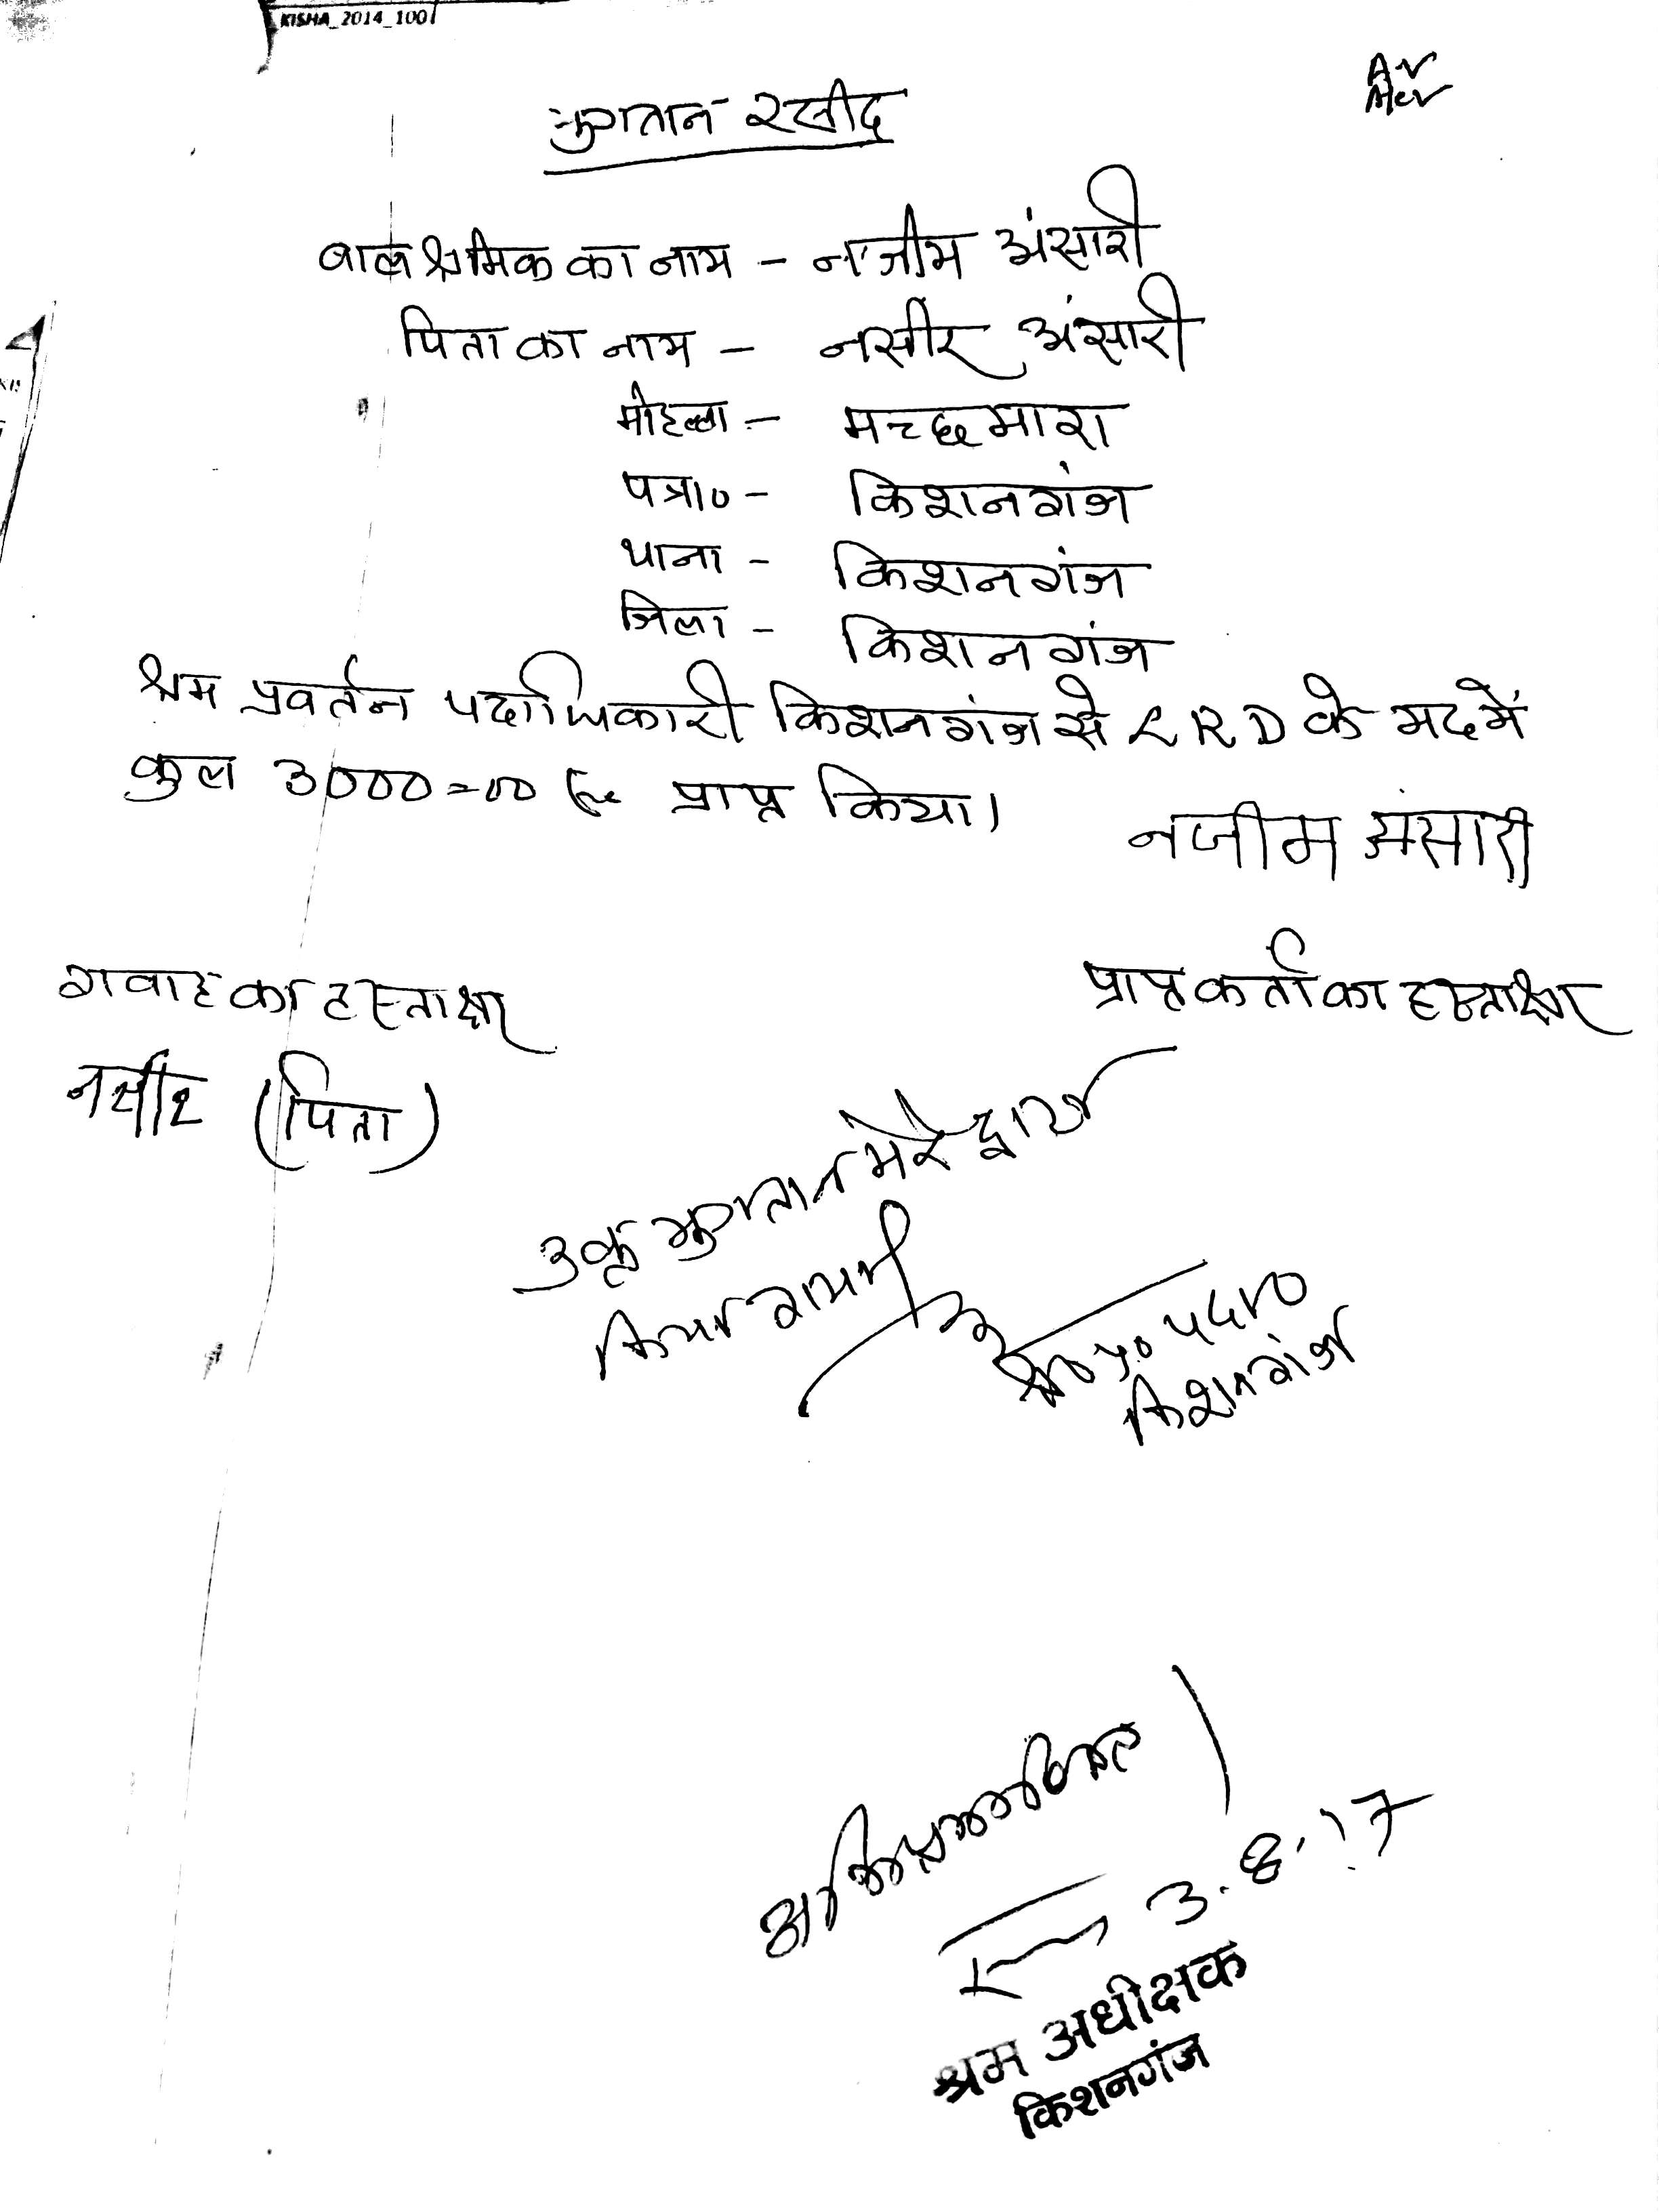 KISHA_2014_100
भुगतान रसीद
बाल श्रमिक का नाम - नजीम अंसारी
पिता का नाम - नसीर अंसारी
मोहल्ला - मच्छमारा
पत्रा० - किशनगंज
थाना - किशनगंज
जिला - किशनगंज
श्रम प्रवर्तन पदाधिकारी किशनगंज से L R D के मद में
कुल 3000=00 रु० प्राप्त किया।
नजीम अंसारी
गवाह का हस्ताक्षर
प्राप्तकर्ता का हस्ताक्षर
नसीर (पिता)
उक्त भुगतान मेरे द्वारा
किया गया।
श्र० प्र० पदा०
किशनगंज
3.8.17
श्रम अधीक्षक
किशनगंज